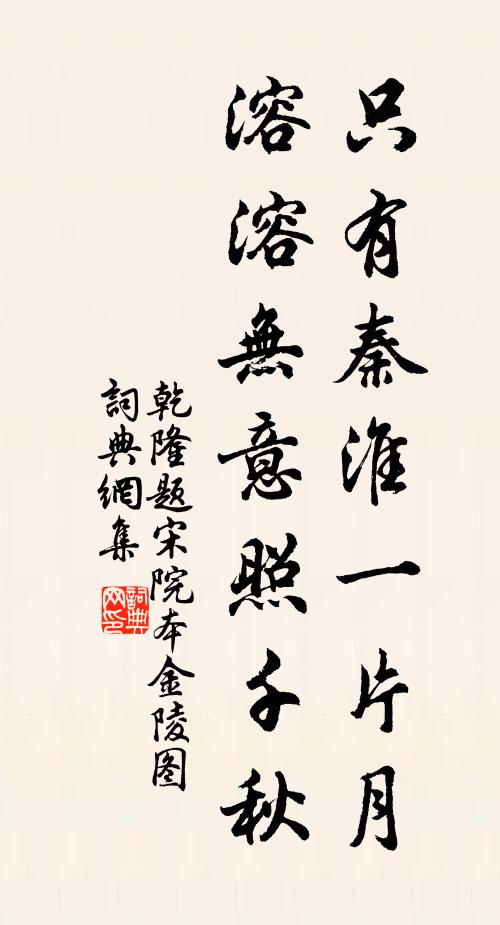 只有秦淮一片月
溶溶無意照千秋
乾隆题宋院本金陵图
詞典網集
詞典
网印